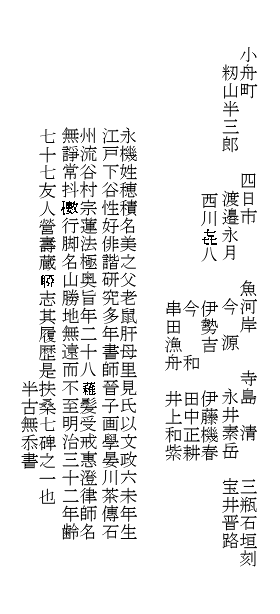 小舟町　四日市　魚河岸　寺島　清　三瓶石垣刻
籾山半三郎　渡邉永月　今　源　永井素岳　宝井晋路
西川㐂八　伊勢吉　伊藤機春
今　和　田中正耕
串田漁舟　井上和紫
永機姓穂積名美之父老鼠肝母里見氏以文政六未年生
江戸下谷性好俳諧研究多年書師晉子画學晏川茶傳石
州流谷村宗蓮法極奥旨年二十八蘿髪受戒惠澄律師名
無諍常抖擻行脚名山勝地無遠而不至明治三十二年齢
七十七友人營壽蔵 志其履歴是扶桑七碑之一也
半古無忝書